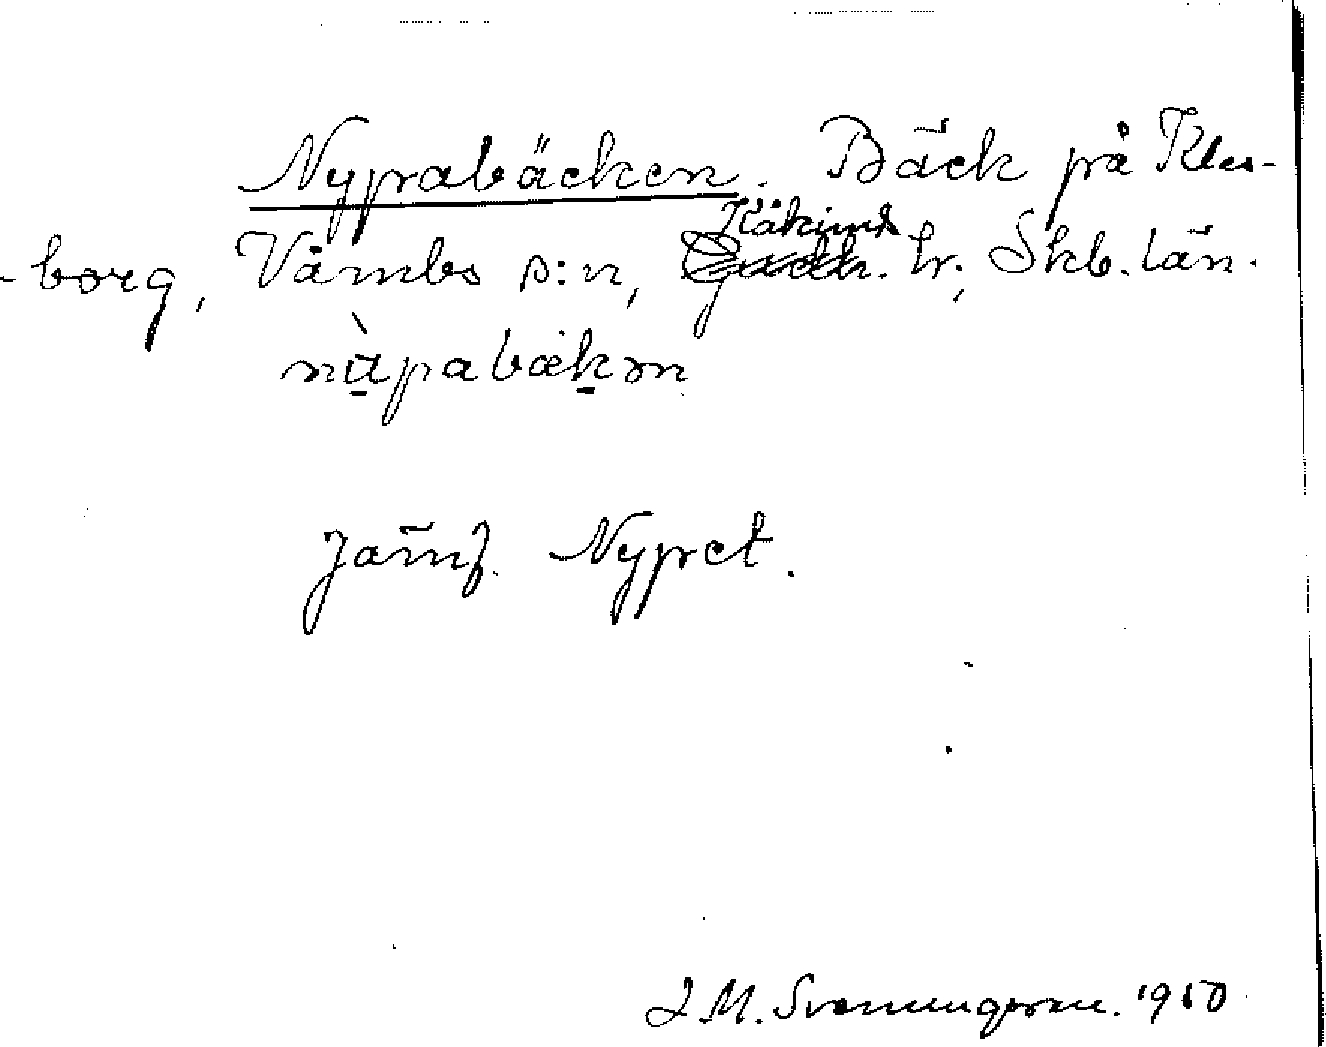 Nypabäcken. Bäck på Klas-
-borg, Våmbs s:n, Kåkinds hr, Skb. län.
nùpabækən
Jämf. Nypet.
J. M. Svenningsson. 1950